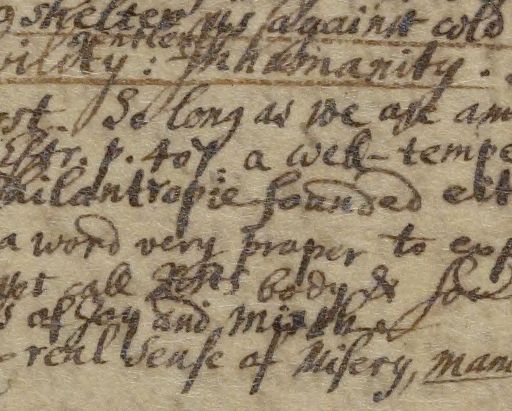 shelter us against cold
Gentleness
vility: Inhumanity.
rst. So long as we are am
Estr. p. 407. a well-tempe
hilantropie founded ext
a word very proper to exp
not call this body & sou
s of Joy and Mirth.
real sense of Misery, man